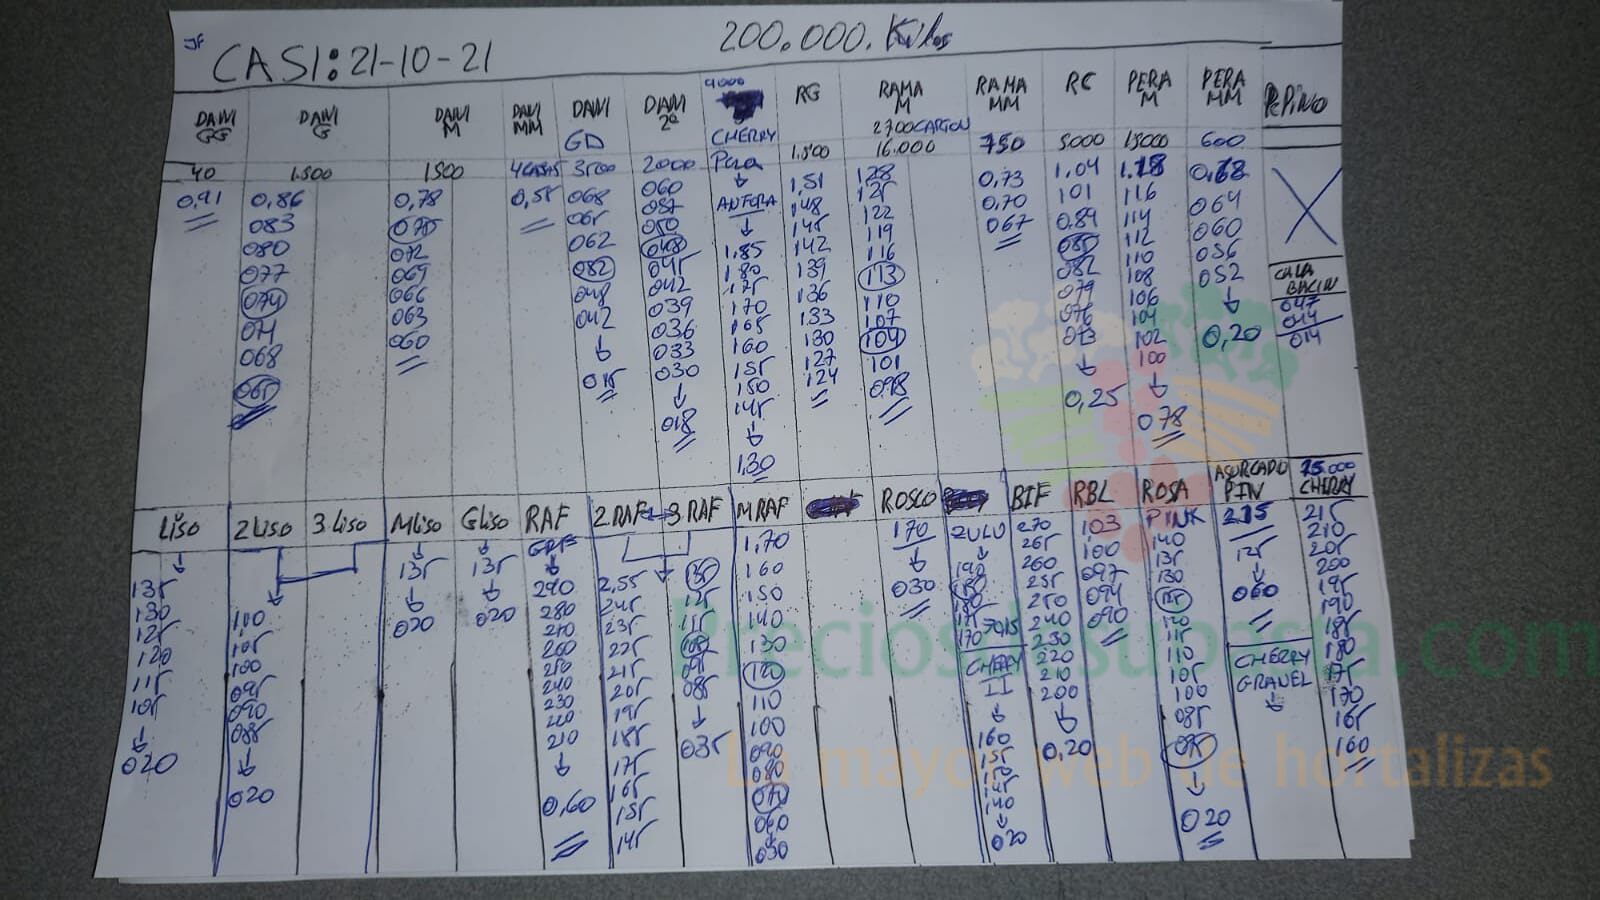 JF
CASI: 21-10-21
200.000. Kilos
DANI GG
40
0,91
DANI G
1.500
0,86
083
080
077
074
071
068
065
DANI M
1500
0,78
075
072
069
066
063
060
DANI MM
4 CAJAS
0,55
DANI GD
3500
068
065
062
082
048
042
015
DANI 2ª
2000
060
050
048
045
042
039
036
033
030
018
4000
CHERRY
Pera
ANFORA
1,85
180
175
170
165
160
155
150
145
1,30
RG
1.500
1,51
148
145
142
139
136
133
130
127
124
RAMA M
2700 CARTON
16.000
128
125
122
119
116
113
110
107
104
101
098
RAMA MM
750
0,73
0,70
067
RC
5000
1,04
101
0.89
085
082
079
076
073
0,25
PERA M
15000
1.18
116
114
112
110
108
106
104
102
100
078
PERA MM
600
0,68
064
060
056
052
0,20
PEPINO
CALA
BACIN
047
044
014
LISO
135
130
125
120
115
105
020
2 LISO
3 LISO
100
105
100
095
090
085
020
M LISO
135
020
G LISO
135
020
RAF
GRF
290
280
270
260
250
240
230
220
210
0,60
2 RAF
3 RAF
2,55
245
235
225
215
205
195
185
175
165
155
145
135
125
115
105
095
085
035
M RAF
1,70
160
150
140
130
120
110
100
090
080
070
060
030
ROSCO
170
030
ZULU
190
180
175
170
CHERRY
II
160
155
150
145
140
020
BIF
270
265
260
255
250
240
230
220
210
200
0,20
RBL
103
100
097
094
090
ROSA
PINK
140
135
130
125
120
115
110
105
100
085
020
ASURCADO
PIN
125
060
CHERRY
GRANEL
CHERRY
215
210
205
200
195
190
185
180
175
170
165
160
Preciosdesubasta.com
La mayor web de hortalizas